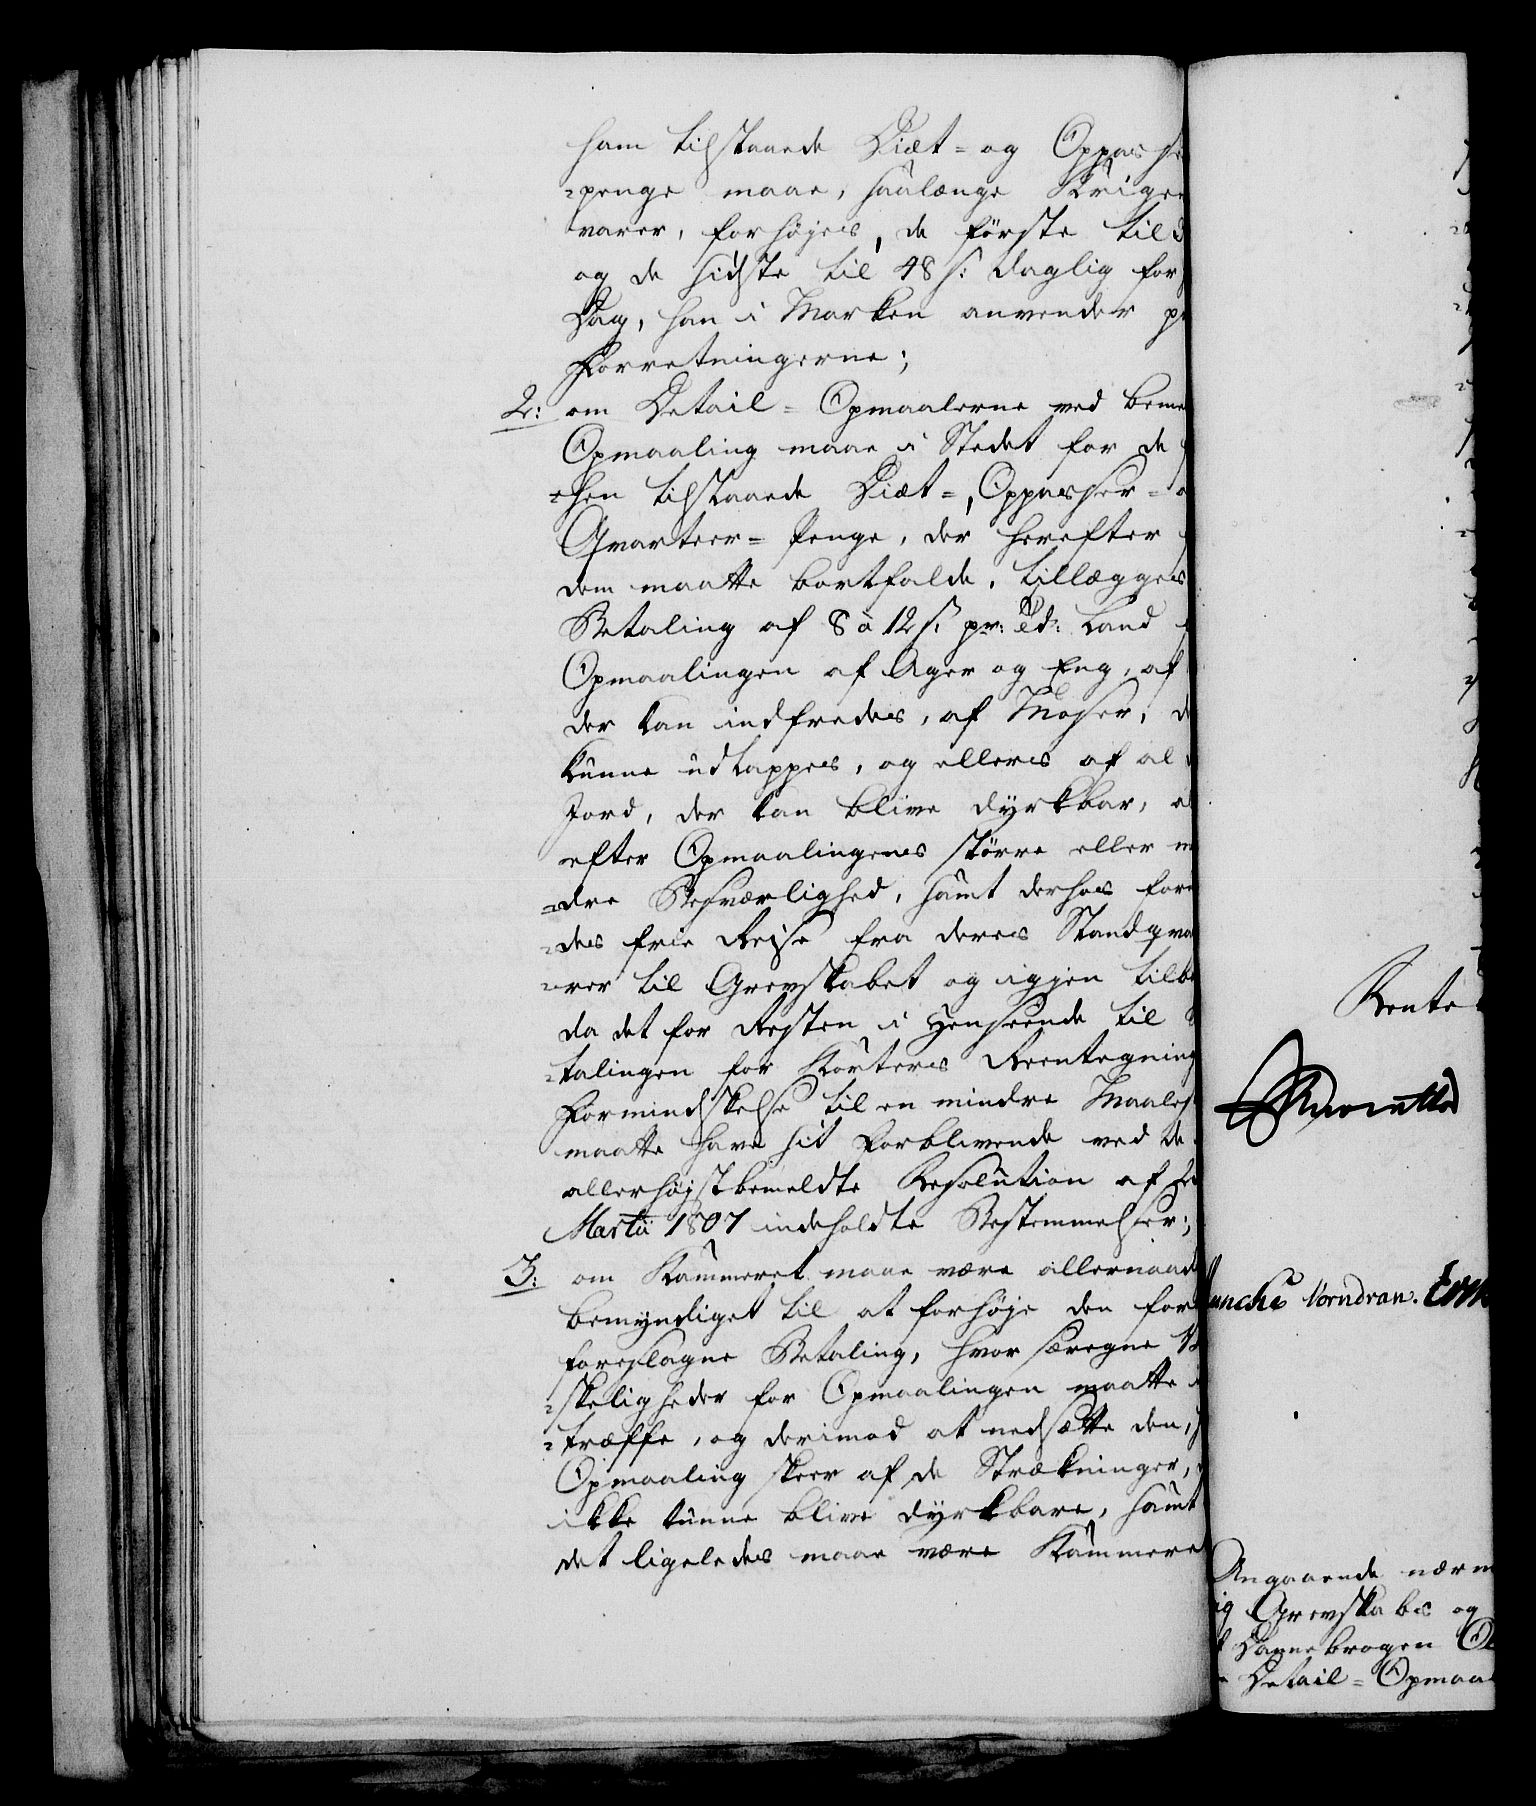 ham tilstaaede Diæt- og Oppasse
-penge maae, saalænge Krigen
varer, forhøjes, de første til
og de sidste til 48 s: daglig for
Dag, han i Marken anvender p
Forretningerne;
2: om Detail-Opmaalerne ved beme
Opmaaling maae i Stedet for de
-hen tilstaaede Diæt-, Oppasser-
Qvarteer-Penge, der herefter
dem maatte bortfalde, tillægges
Betaling af 8 à 12 s: pr: Td: Land
Opmaalingen af Ager og Eng, af
der kan indfredes, af Moser, d
kunne udtappes, og ellers af al
Jord, der kan blive dyrkbar, a
efter Opmaalingens større eller m
-dre Besværlighed, samt derhos for
-des frie Rejse fra deres Standqva
-rer til Grevskabet og igjen tilb
da det for Resten i Henseende til
-talingen for Korters Reentegning
Formindskelse til en mindre Maales
maatte have sit Forblivende ved de
allerhøjstbemeldte Resolution af
Martii 1807 indeholdte Bestemmelser;
3: om Kammeret maae være allernaad
bemyndiget til at forhøje den for
foreslagne Betaling, hvor særegne
-skeligheder for Opmaalingen maatte
-træffe, og derimod at nedsætte den,
Opmaaling skeer af de Strækninger,
ikke kunne blive dyrkbare, samt
det ligeledes maae være Kammeret
Rente
Vorndran.
Angaaende nærm
ig Grevskabs og
Dannebrogen
Detail-Opmaa